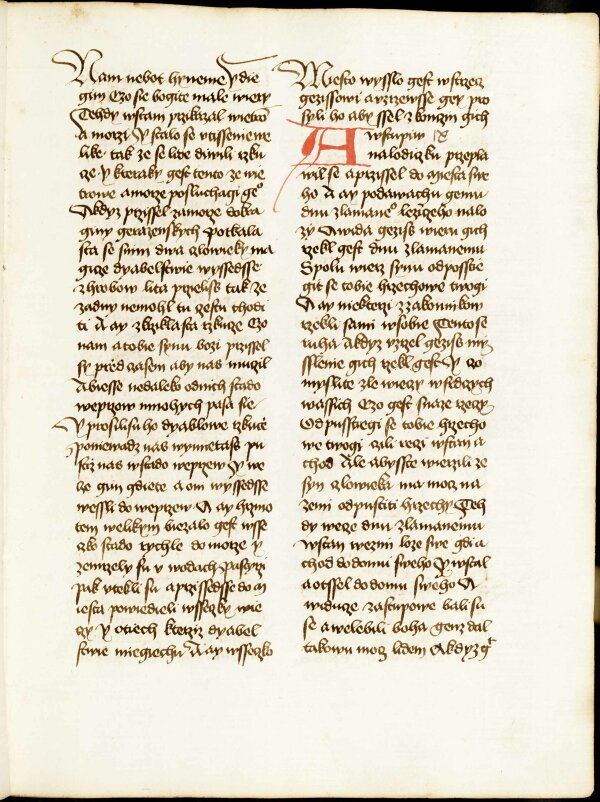 Nam nebot hyneme Y die
gim Czo sie bogite male wiery
Tehdy wstaw przikazal wietro
a morzi Y stalo se vtissenie we
like tak ze se lide diwili rzku
ze y kteraky gest tento ze wie
trowe a morze posluchagi geo
A kdyz przissel za morze do kra
giny gerazenskych Potkala
sta se s nim dwa czlowieky ma
gize dyabelstwie wyssedsse
z hrobow lita przielis tak ze
zadny nemohl tu cestu chodi
ti A ay zkrziklasta rzkuze Czo
nam a tobie synu bozi przissel
sy przed czasem aby nas muczil
A biesse nedaleko od nich stado
weprzow mnohych pasa sie
Y prosilisu ho dyablowe rzkuce
poniewadz nas wymietass pu
stiz nas w stado weprzow Y we
ce gim gdiete a oni wyssedsse
wessli do weprzow A ay hrmo
tem welikym biezalo gest wsse
czko stado rychle do morze y
zemrzely su v wodach Pastyrzi
pak vtekli su a przissedsse do m
iesta powiedieli wsseczky wie
czy y o tiech kterziz dyabel
stwie miegiechu A ay wsseczko
Miesto wysslo gest w strzecz
gezissowi a vzrzewsse gey pro
syli ho aby ssel z konczin gich
A wstupiw IX
na lodiczku przepla
wil se a przissel do miesta swe
ho A ay podawachu gemu
dnu zlamaneo lezicyeho na lo
zy A wida geziss wieru gich
rzekl gest dnu zlamanemu
Spolu wierz synu odposstie
git se tobie hrziechowe twogi
A ay niekterzi z zakonnikow
rzekli sami w sobie Tento se
ruha A kdyz vzrzel geziss my
sslenie gich rzekl gest Y czo
myslite zle wieczy w srdczych
wassich Czo gest snaze rzeczy
Odpusstiegi se tobie hrziecho
we twogi czili rzeczi wstan a
chod Ale abysste wierzili ze
syn czlowieka ma mocz na
zemi odpustiti hrziechy Teh
dy wece dnu zlamanemu
wstan wezmi loze swe gdi a
chod do domu sweho Y wstal
a otssel do domu sweho A
widuce zastupowe bali su
se a welebili boha genz dal
takowu mocz lidem A kdyz gt